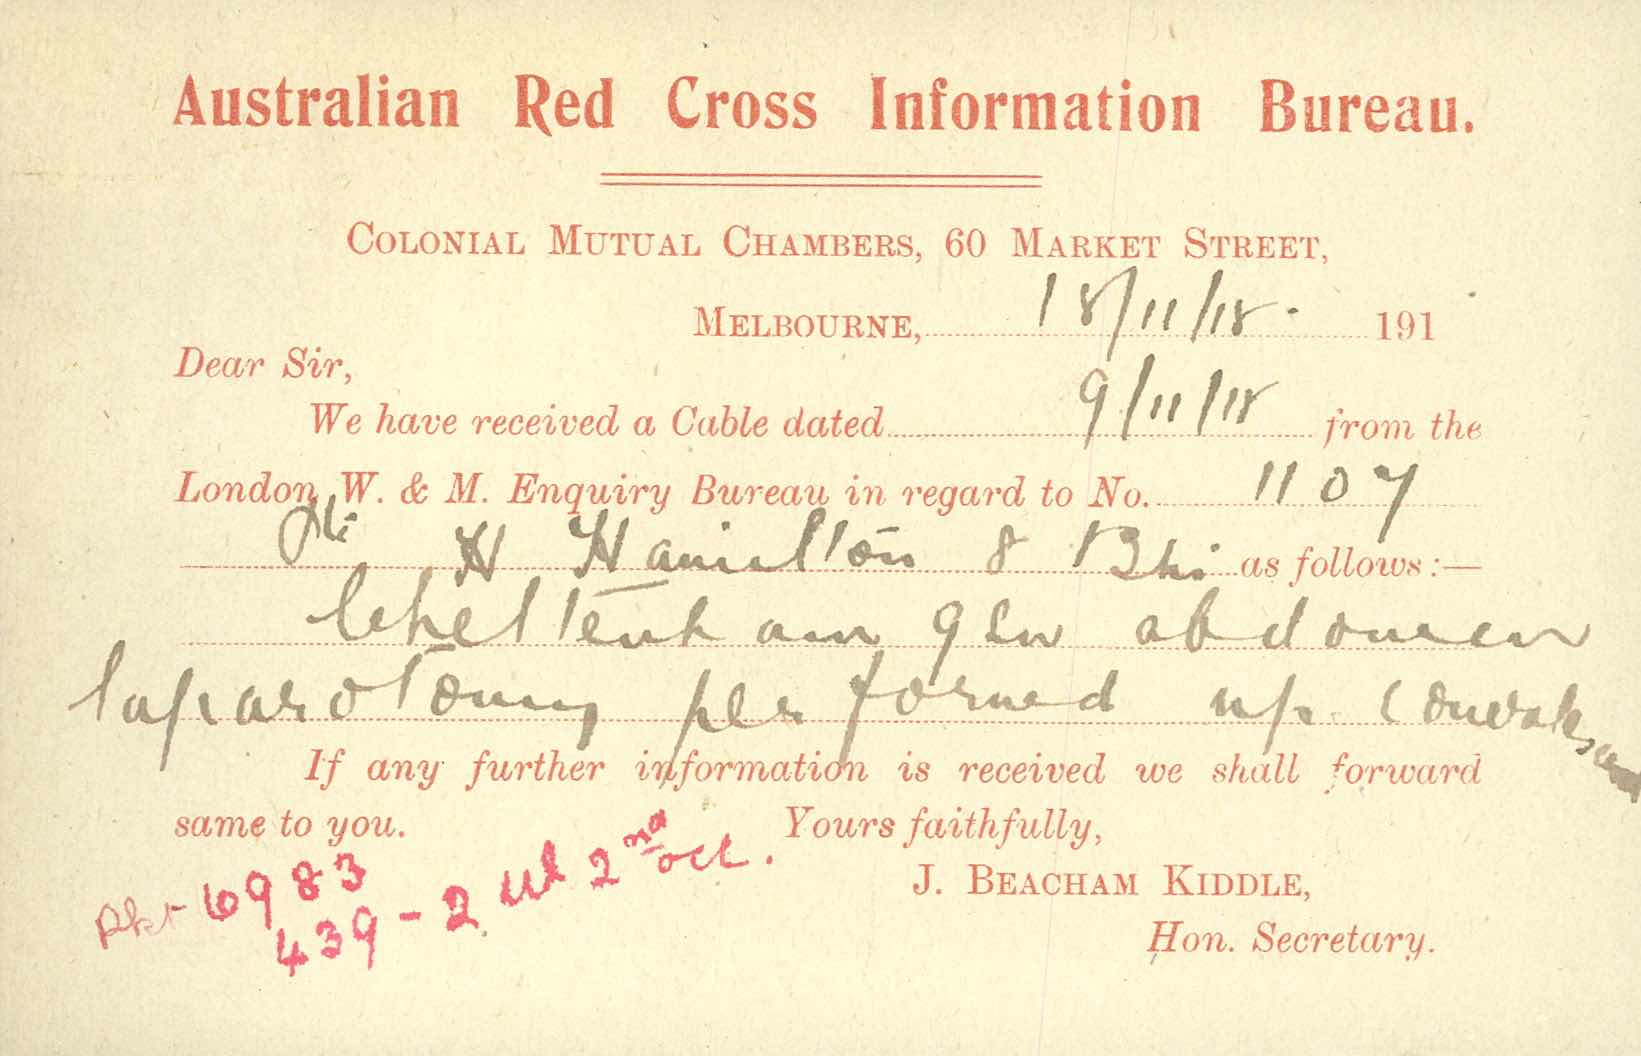 Australian Red Cross Information Bureau.
COLONIAL MUTUAL CHAMBERS, 60 MARKET STREET,
MELBOURNE, 18/11/18. 191
Dear Sir,
We have received a Cable dated 9/11/18 from the
London W. & M. Enquiry Bureau in regard to No. 1107
H Hamilton 8 Bn as follows:—
Cheltenham gsw abdomen
laparotomy performed up convalescent
If any further information is received we shall forward
same to you. Yours faithfully,
J. BEACHAM KIDDLE,
Hon. Secretary.
6983
439 - 2 2nd Oct.